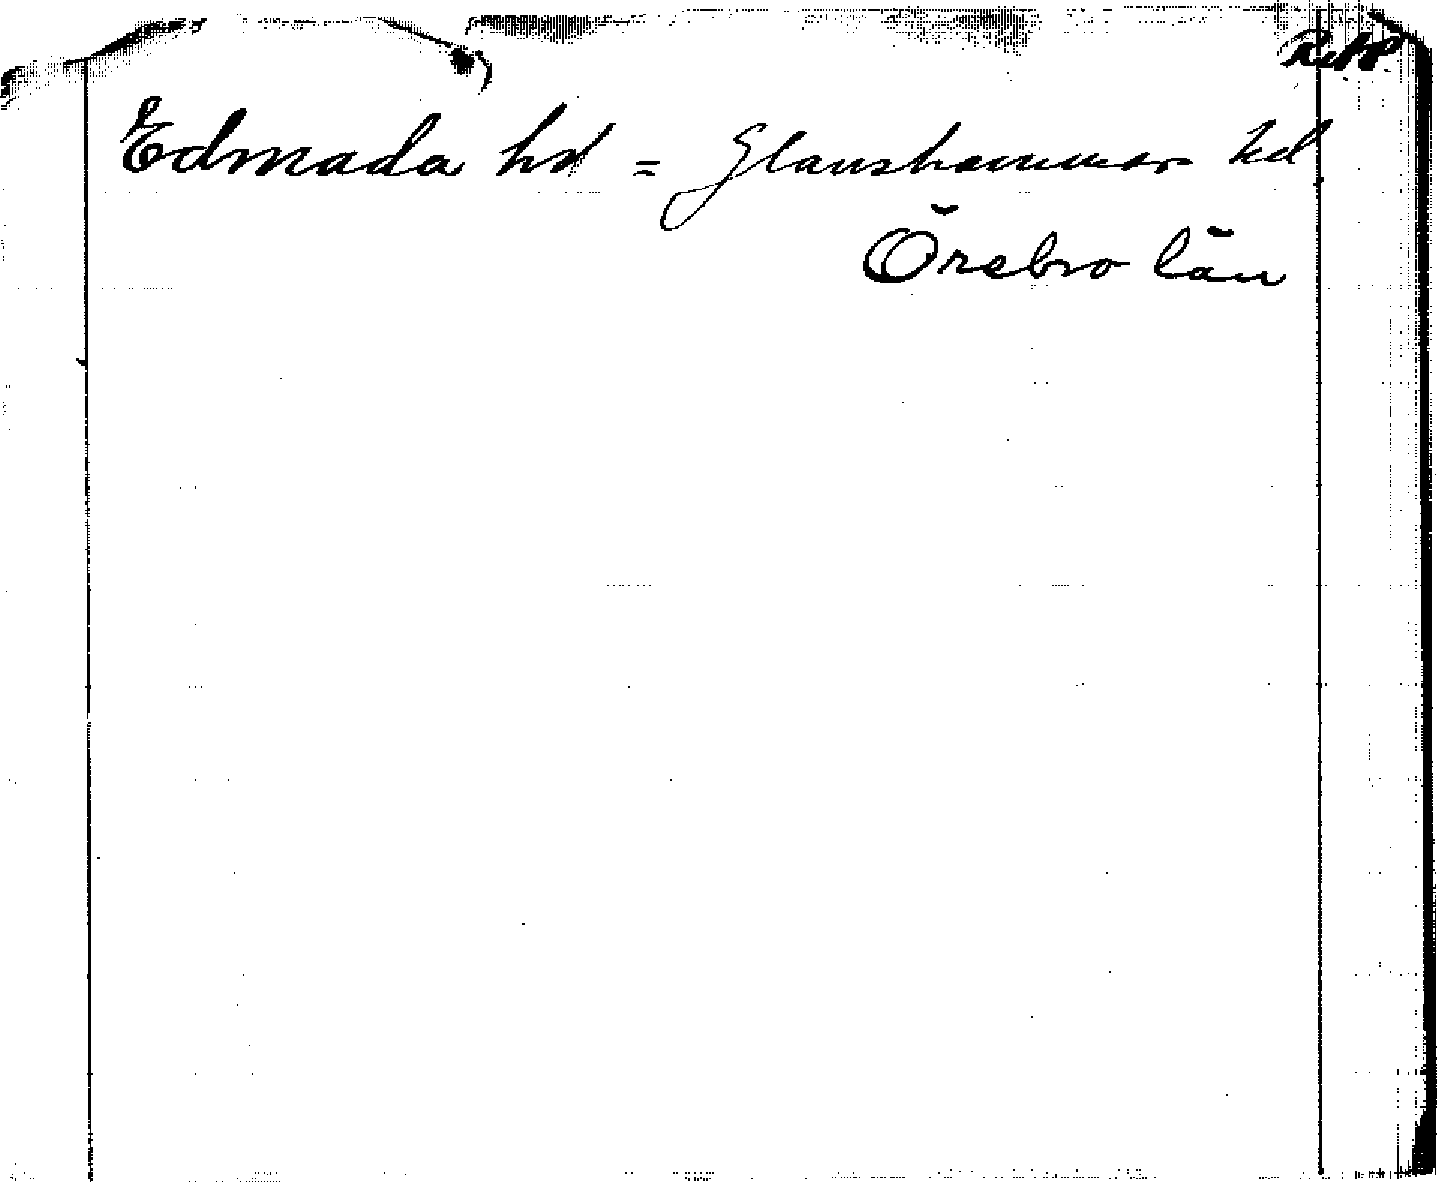 Edmada hd = Glanshammar hd
Örebro län